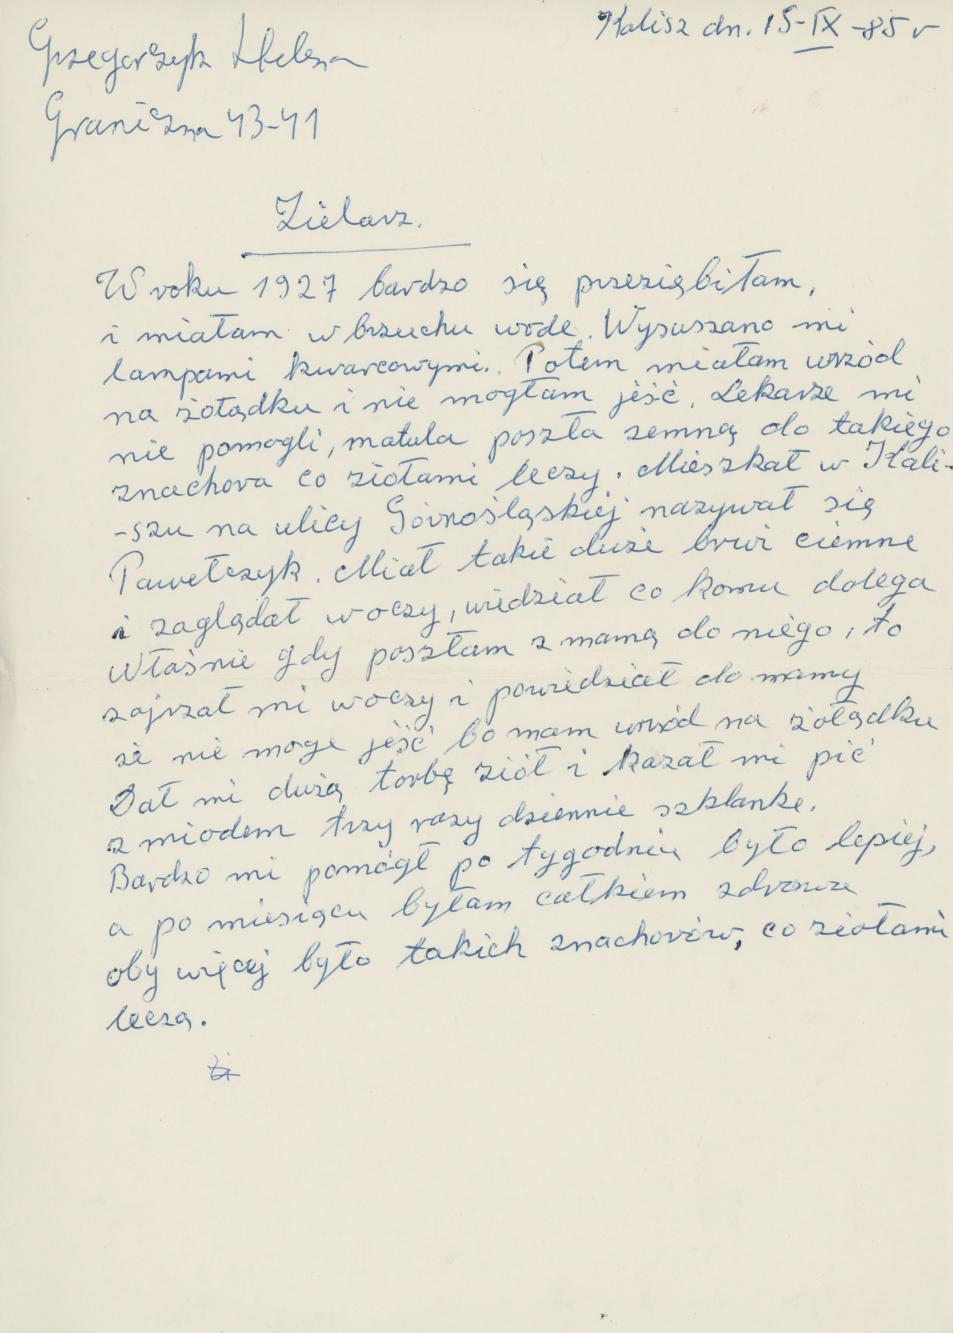 Kalisz dn. 15-IX-85 r
Grzegorzyk Helena
Graniczna 43-41
Zielarz.
W roku 1927 bardzo się przeziąbiłam,
i miałam w brzuchu wode. Wysuszano mi
lampami kwarcowymi. Potem miałam wrzód
na żołądku i nie mogłam jeść. Lekarze mi
nie pomogli, matula poszła zemną do takiego
znachora co ziołami leczy. Mieszkał w Kali-
-szu na ulicy Górnośląskiej nazywał się
Pawełczyk. Miał takie duże brwi ciemne
i zaglądał w oczy, widział co komu dolega
Właśnie gdy poszłam z mamą do niego, to
zajrzał mi w oczy i powiedział do mamy
że nie moge jeść bo mam wrzód na żołądku
Dał mi dużą torbę ziół i kazał mi pić
z miodem trzy razy dziennie szklanke.
Bardzo mi pomógł po tygodniu było lepiej,
a po miesiącu byłam całkiem zdrowa
oby więcej było takich znachorów, co ziołami
leczą.